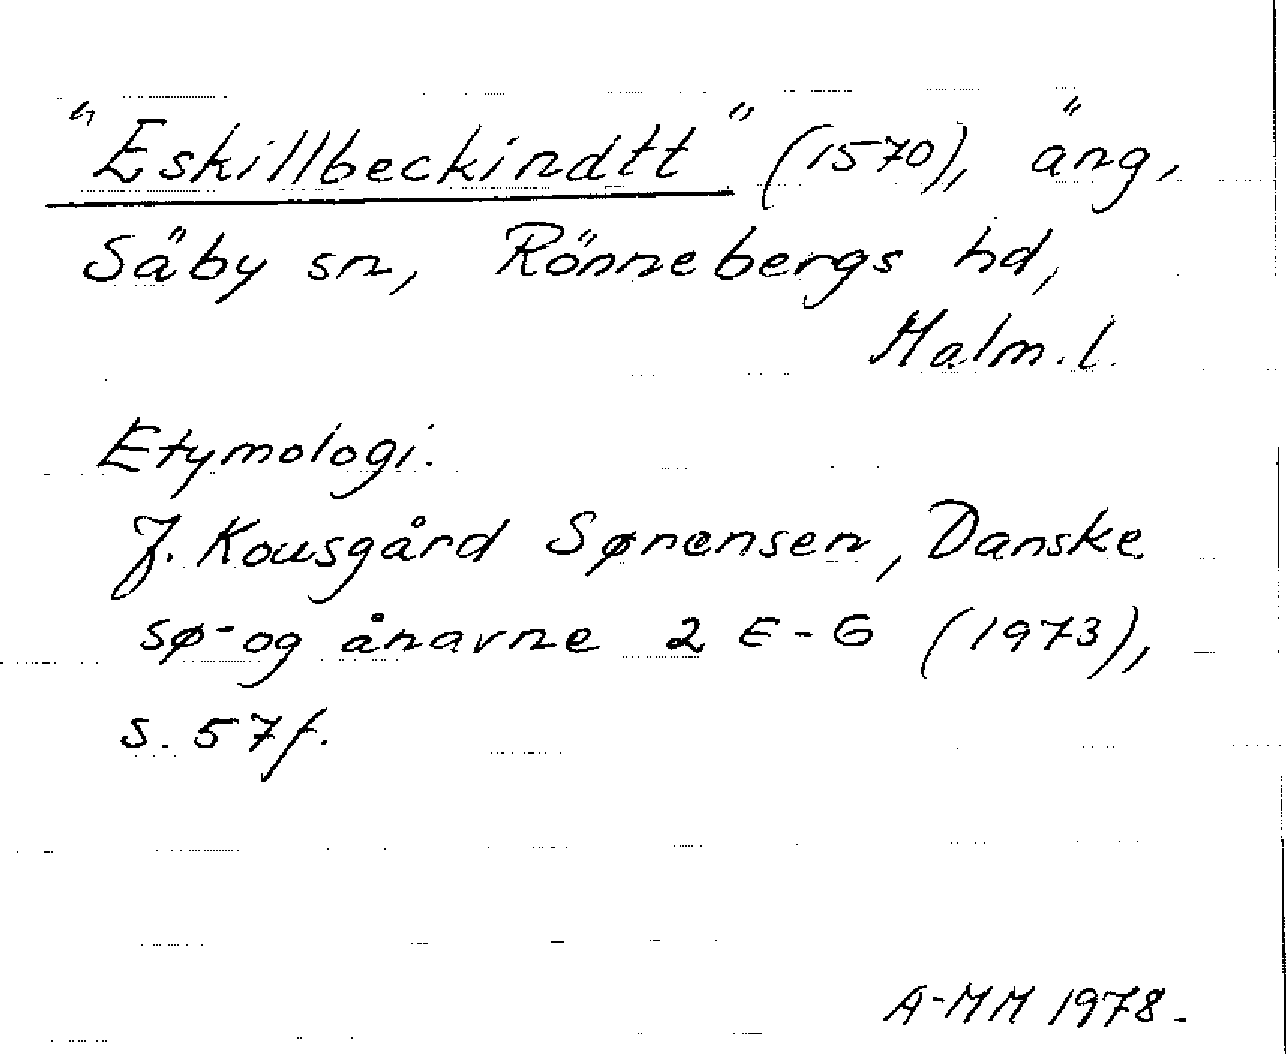 "Eskillbeckindtt" (1570), äng,
Säby sn, Rönnebergs hd,
Malm. l.
Etymologi.
J. Kousgård Sørensen, Danske
sø- og ånavne 2 E-G (1973),
s. 57f.
A-MM 1978.